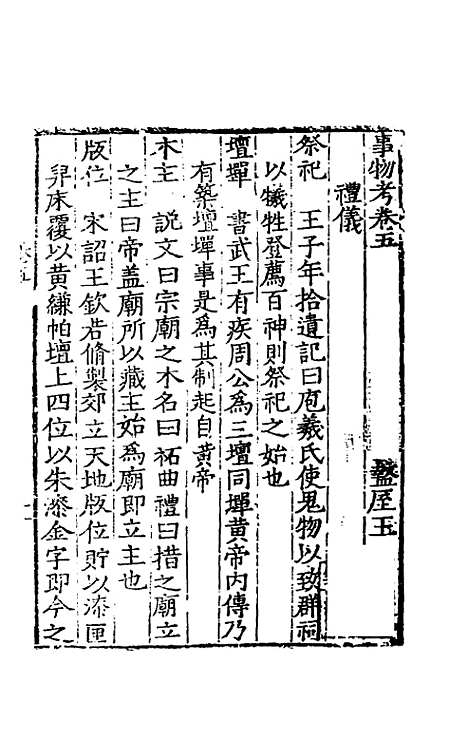 事物考卷五
禮儀
祭祀　王子年拾遺記曰庖羲氏使鬼物以致群祠
以犧牲登薦百神則祭祀之始也
壇墠　書武王有疾周公爲三壇同墠黄帝内傳乃
有築壇墠事是爲其制起自黄帝
木主　説文曰宗廟之木名曰祏曲禮曰措之廟立
之主曰帝盖廟所以藏主始爲廟即立主也
版位　宋詔王欽若脩製郊立天地版位貯以漆匣
舁床覆以黄縑帕壇上四位以朱漆金字即今之